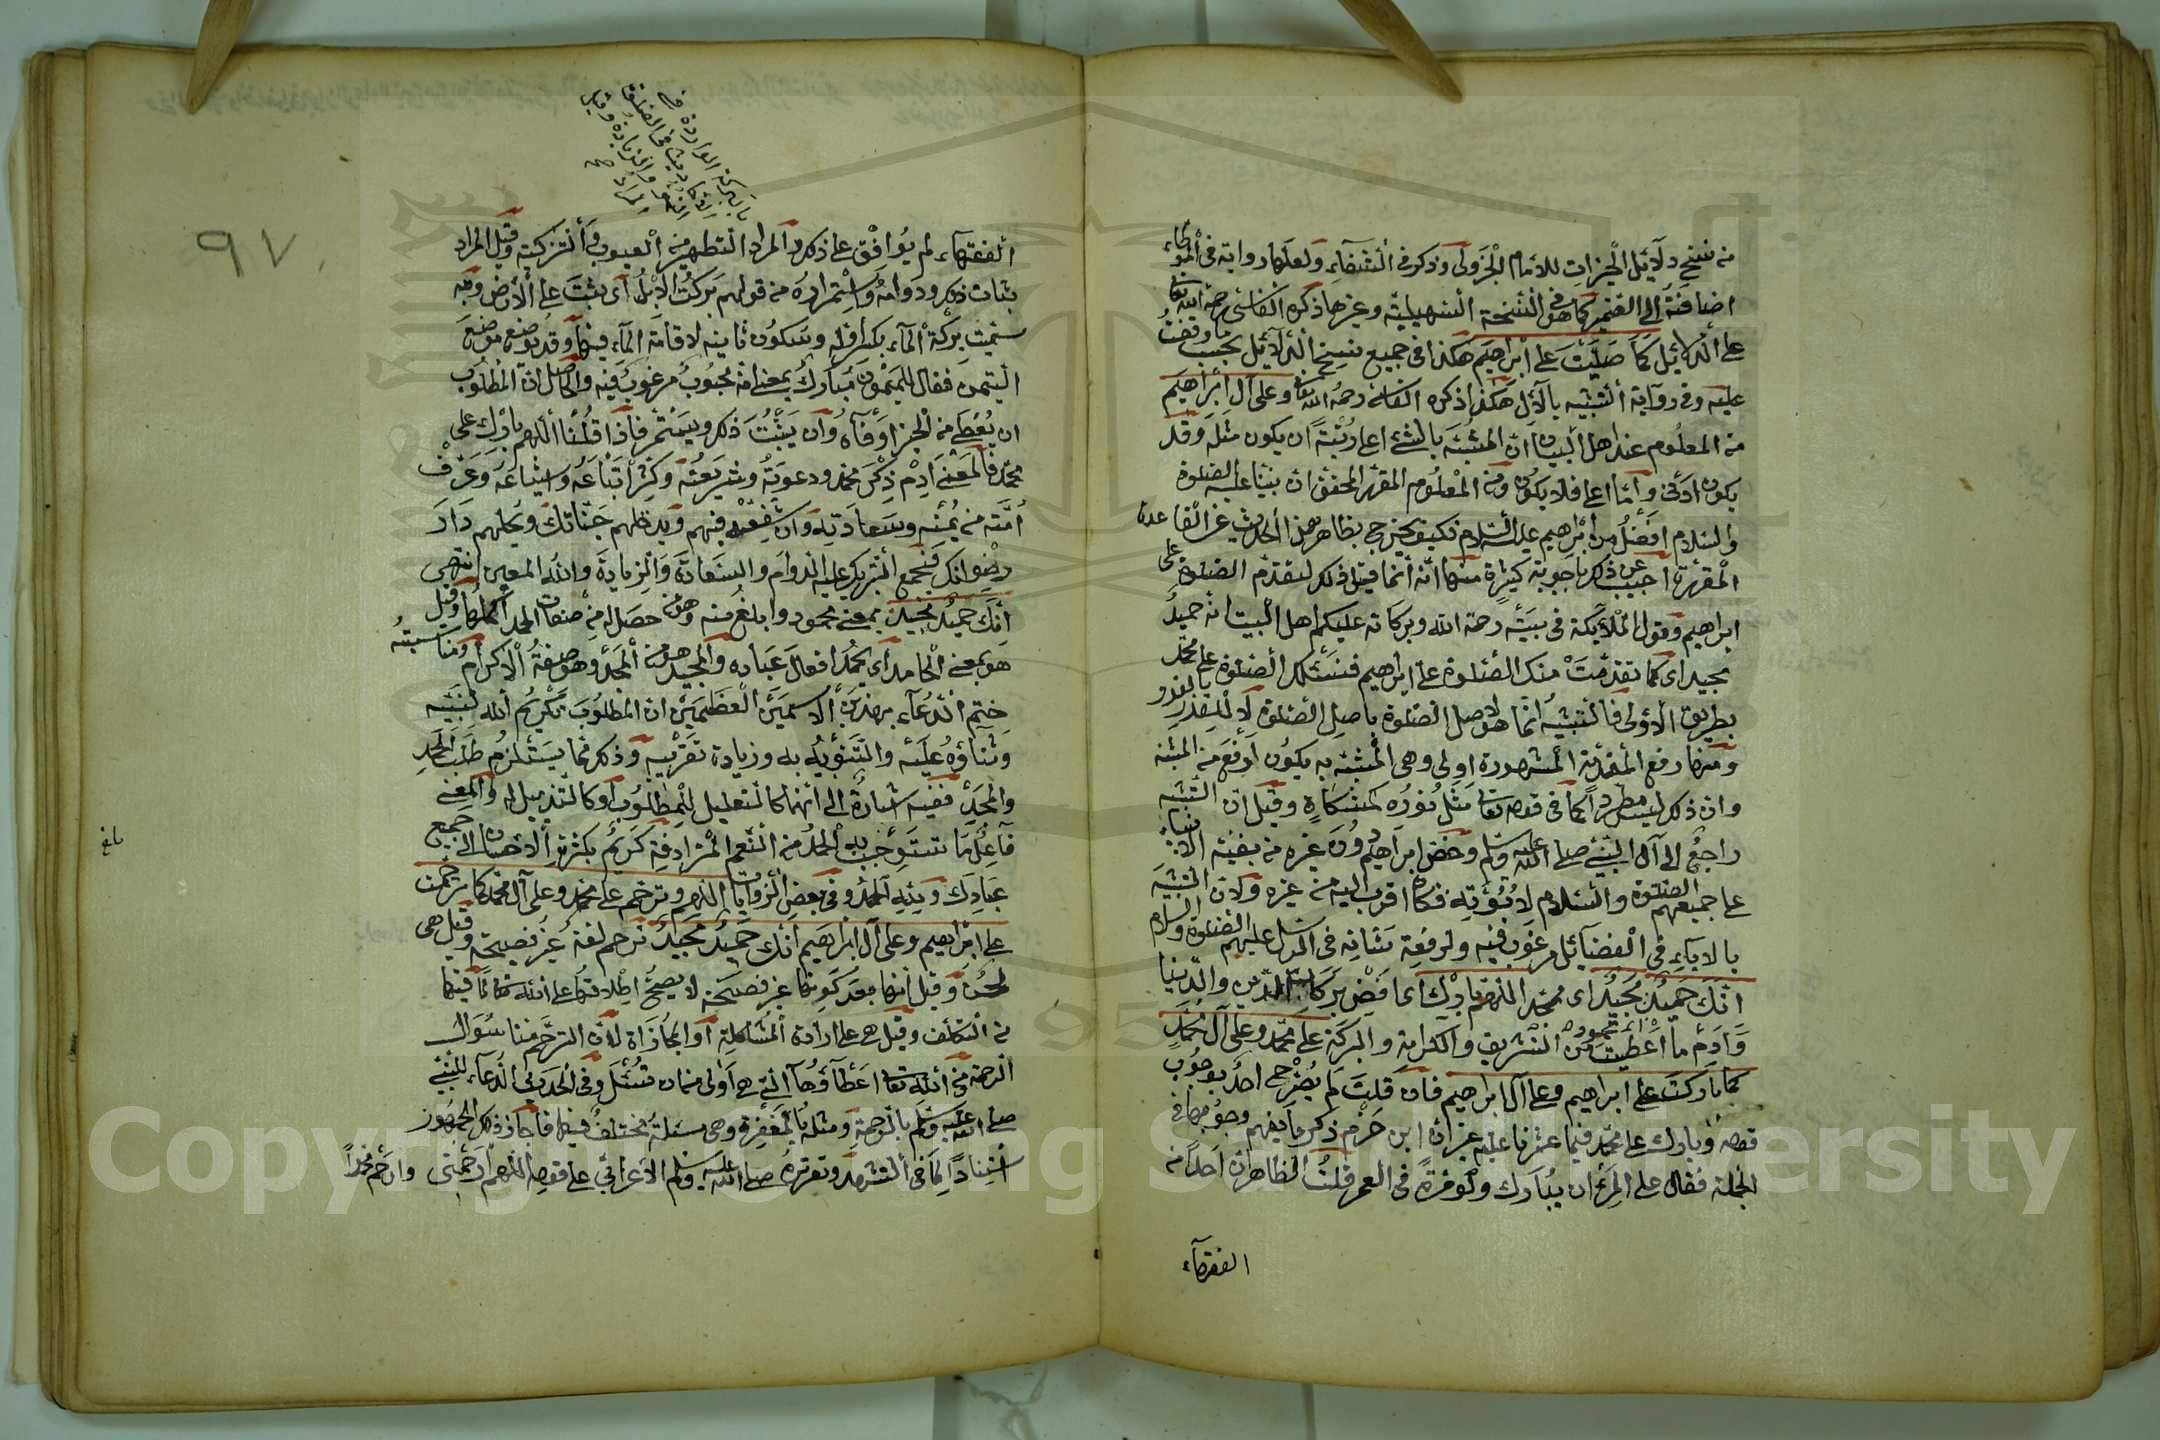 من نسخ دلائل الخيرات للامام الجزولي وذكر في الشفاء ولعلها رواية في الموطاء
اضافته الى الضمير كما هو في النسخة السهيلية وغيرها ذكره الفاسي رحمه الله تعالى
على الدلائل كما صليت على ابراهيم هكذا في جميع نسخ الدلائل بحسب ما وقفت
عليه وفي رواية التشبيه بالآل هكذا ذكره الفاسي رحمه الله تعالى وعلى آل ابراهيم
من المعلوم عند اهل البيان ان المشبه بالشئ اعلا رتبة ان يكون مثله وقد
يكون ادنى واما اعلا فلا يكون ومن المعلوم المقرر المحقق ان نبينا عليه الصلوة
والسلام افضل من ابراهيم عليه السلام فكيف يخرج بظاهر هذا الحديث عن القاعدة
المقررة اجيب عن ذلك باجوبة كثيرة منها انه انما قيل ذلك لتقدم الصلوة على
ابراهيم وقول الملائكة في بيته رحمة الله وبركاته عليكم اهل البيت انه حميد
مجيد اى كما تقدمت منك الصلوة على ابراهيم فنسئلك الصلوة على محمد
بطريق الاولى فالتشبيه انما هو لاصل الصلوة باصل الصلوة لا للقدر بالقدر
ومنها رفع المقدمة المشهورة اولى وهى المشبه به يكون ارفع من المشبه
وان ذلك ليس مطرداً كما في قوله تعالى مثل نوره كمشكاة وقيل ان التشبيه
راجع الى آل النبي صلى الله عليه وسلم وخص ابراهيم دون غيره من بقية الانبياء
على جميعهم الصلوة والسلام لابوته فكان اقرب اليه من غيره ولان التشبيه
بالاباء في الفضائل مرغوب فيه ولرفعة شانه في الرسل عليهم الصلوة والسلام
انك حميد مجيد اى محمد اللهم بارك اى افض بركات الدين والدنيا
وادم ما اعطيت من التشريف والكرامة والبركة على محمد وعلى آل محمد
كما باركت على ابراهيم وعلى آل ابراهيم فان قلت لم يصرح احد بوجوب
قوله وبارك على محمد فيما عثرنا عليه غير ان ابن حزم ذكر ما يفهم وجوبها في
الجملة فقال على المرء ان يبارك ولو مرة في العمر قلت الظاهر ان احدا من
الفقهاء
٩٧
بالبركة الواردة في
الفقهاء لم يوافق على ذلك والمراد التطهير من العيوب والتزكية وقيل المراد
ثبات ذلك ودوامه واستمراره من قولهم بركت الابل اى ثبتت على الارض وبه
سميت بركة الماء بكسر اوله وسكون ثانيه لاقامة الماء فيها وقد يوضع موضع
التيمن فقال للميمون مبارك بمعنى انه محبوب مرغوب فيه والحاصل ان المطلوب
ان يعطى من الخير اوفاه وان يثبت ذلك ويستمر فاذا قلنا اللهم بارك على
محمد فالمعنى ادم ذكر محمد ودعوته وشريعته وكثر اتباعه واشياعه وعرف
امته من يمنه وسعادته وان تشفعه فيهم وتدخلهم جناتك وتحلهم دار
رضوانك فتجمع التبريك عليه الدوام والسعادة والزيادة والله المعين انتهى
انك حميد مجيد بمعنى محمود وابلغ منه وهو من حصل له من صفات الحمد اكملها وقيل
هو بمعنى الحامد اى يحمد افعال عباده والمجيد هو من المجد وهو صفة الاكرام ومناسبة
ختم الدعاء بهذين الاسمين العظيمين ان المطلوب تكريم الله لنبيه
وثناؤه عليه والتنويه به وزيادة تقريبه وذلك مما يستلزم طلب الحمد
والمجد ففيه اشارة الى انهما كالتعليل للمطلوب او كالتذييل له والمعنى
فاعل ما تستوجب به الحمد من النعم المترادفة كريم بكثرة الاحسان الى جميع
عبادك ولله الحمد وفي بعض الروايات اللهم وترحم على محمد وعلى آل محمد كما ترحمت
على ابراهيم وعلى آل ابراهيم انك حميد مجيد ترحم لغة غير فصيحة وقيل هى
لحن وقيل انها بعد كونها غير فصيحة لا يصح اطلاقها على الله تعالى لما فيها
من التكلف وقيل هى على ارادة المشاكلة او المجازاة لان الترحم منا سؤال
الرحمة من الله تعالى اعطاؤها التي هى اولى من ان تسئل وفي الحديث الدعاء للنبي
صلى الله عليه وسلم بالرحمة ومثله بالمغفرة وهى مسئلة مختلف فيها فاجاز ذلك الجمهور
استنادا لما في التشهد وتقريره صلى الله عليه وسلم الاعرابي على قوله اللهم ارحمني وارحم محمداً
بلغ
Copyright © King Saud University